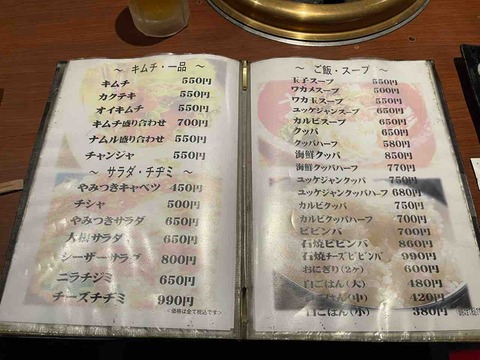 ～ キムチ・一品 ～
キムチ 550円
カクテキ 550円
オイキムチ 550円
キムチ盛り合わせ 700円
ナムル盛り合わせ 550円
チャンジャ 550円
～ サラダ・チヂミ ～
やみつきキャベツ 450円
チシャ 500円
やみつきサラダ 650円
大根サラダ 650円
シーザーサラダ 800円
ニラチジミ 650円
チーズチヂミ 990円
<価格は全て税込です>
～ ご飯・スープ ～
玉子スープ 550円
ワカメスープ 500円
ワカ玉スープ 550円
ユッケジャンスープ 650円
カルビスープ 650円
クッパ 650円
クッパハーフ 580円
海鮮クッパ 850円
海鮮クッパハーフ 770円
ユッケジャンクッパ 750円
ユッケジャンクッパハーフ 680円
カルビクッパ 750円
カルビクッパハーフ 700円
ビビンバ 700円
石焼ビビンバ 860円
石焼チーズビビンバ 990円
おにぎり(2ヶ) 600円
白ごはん(大) 480円
白ごはん(中) 420円
白ごはん(小) 380円